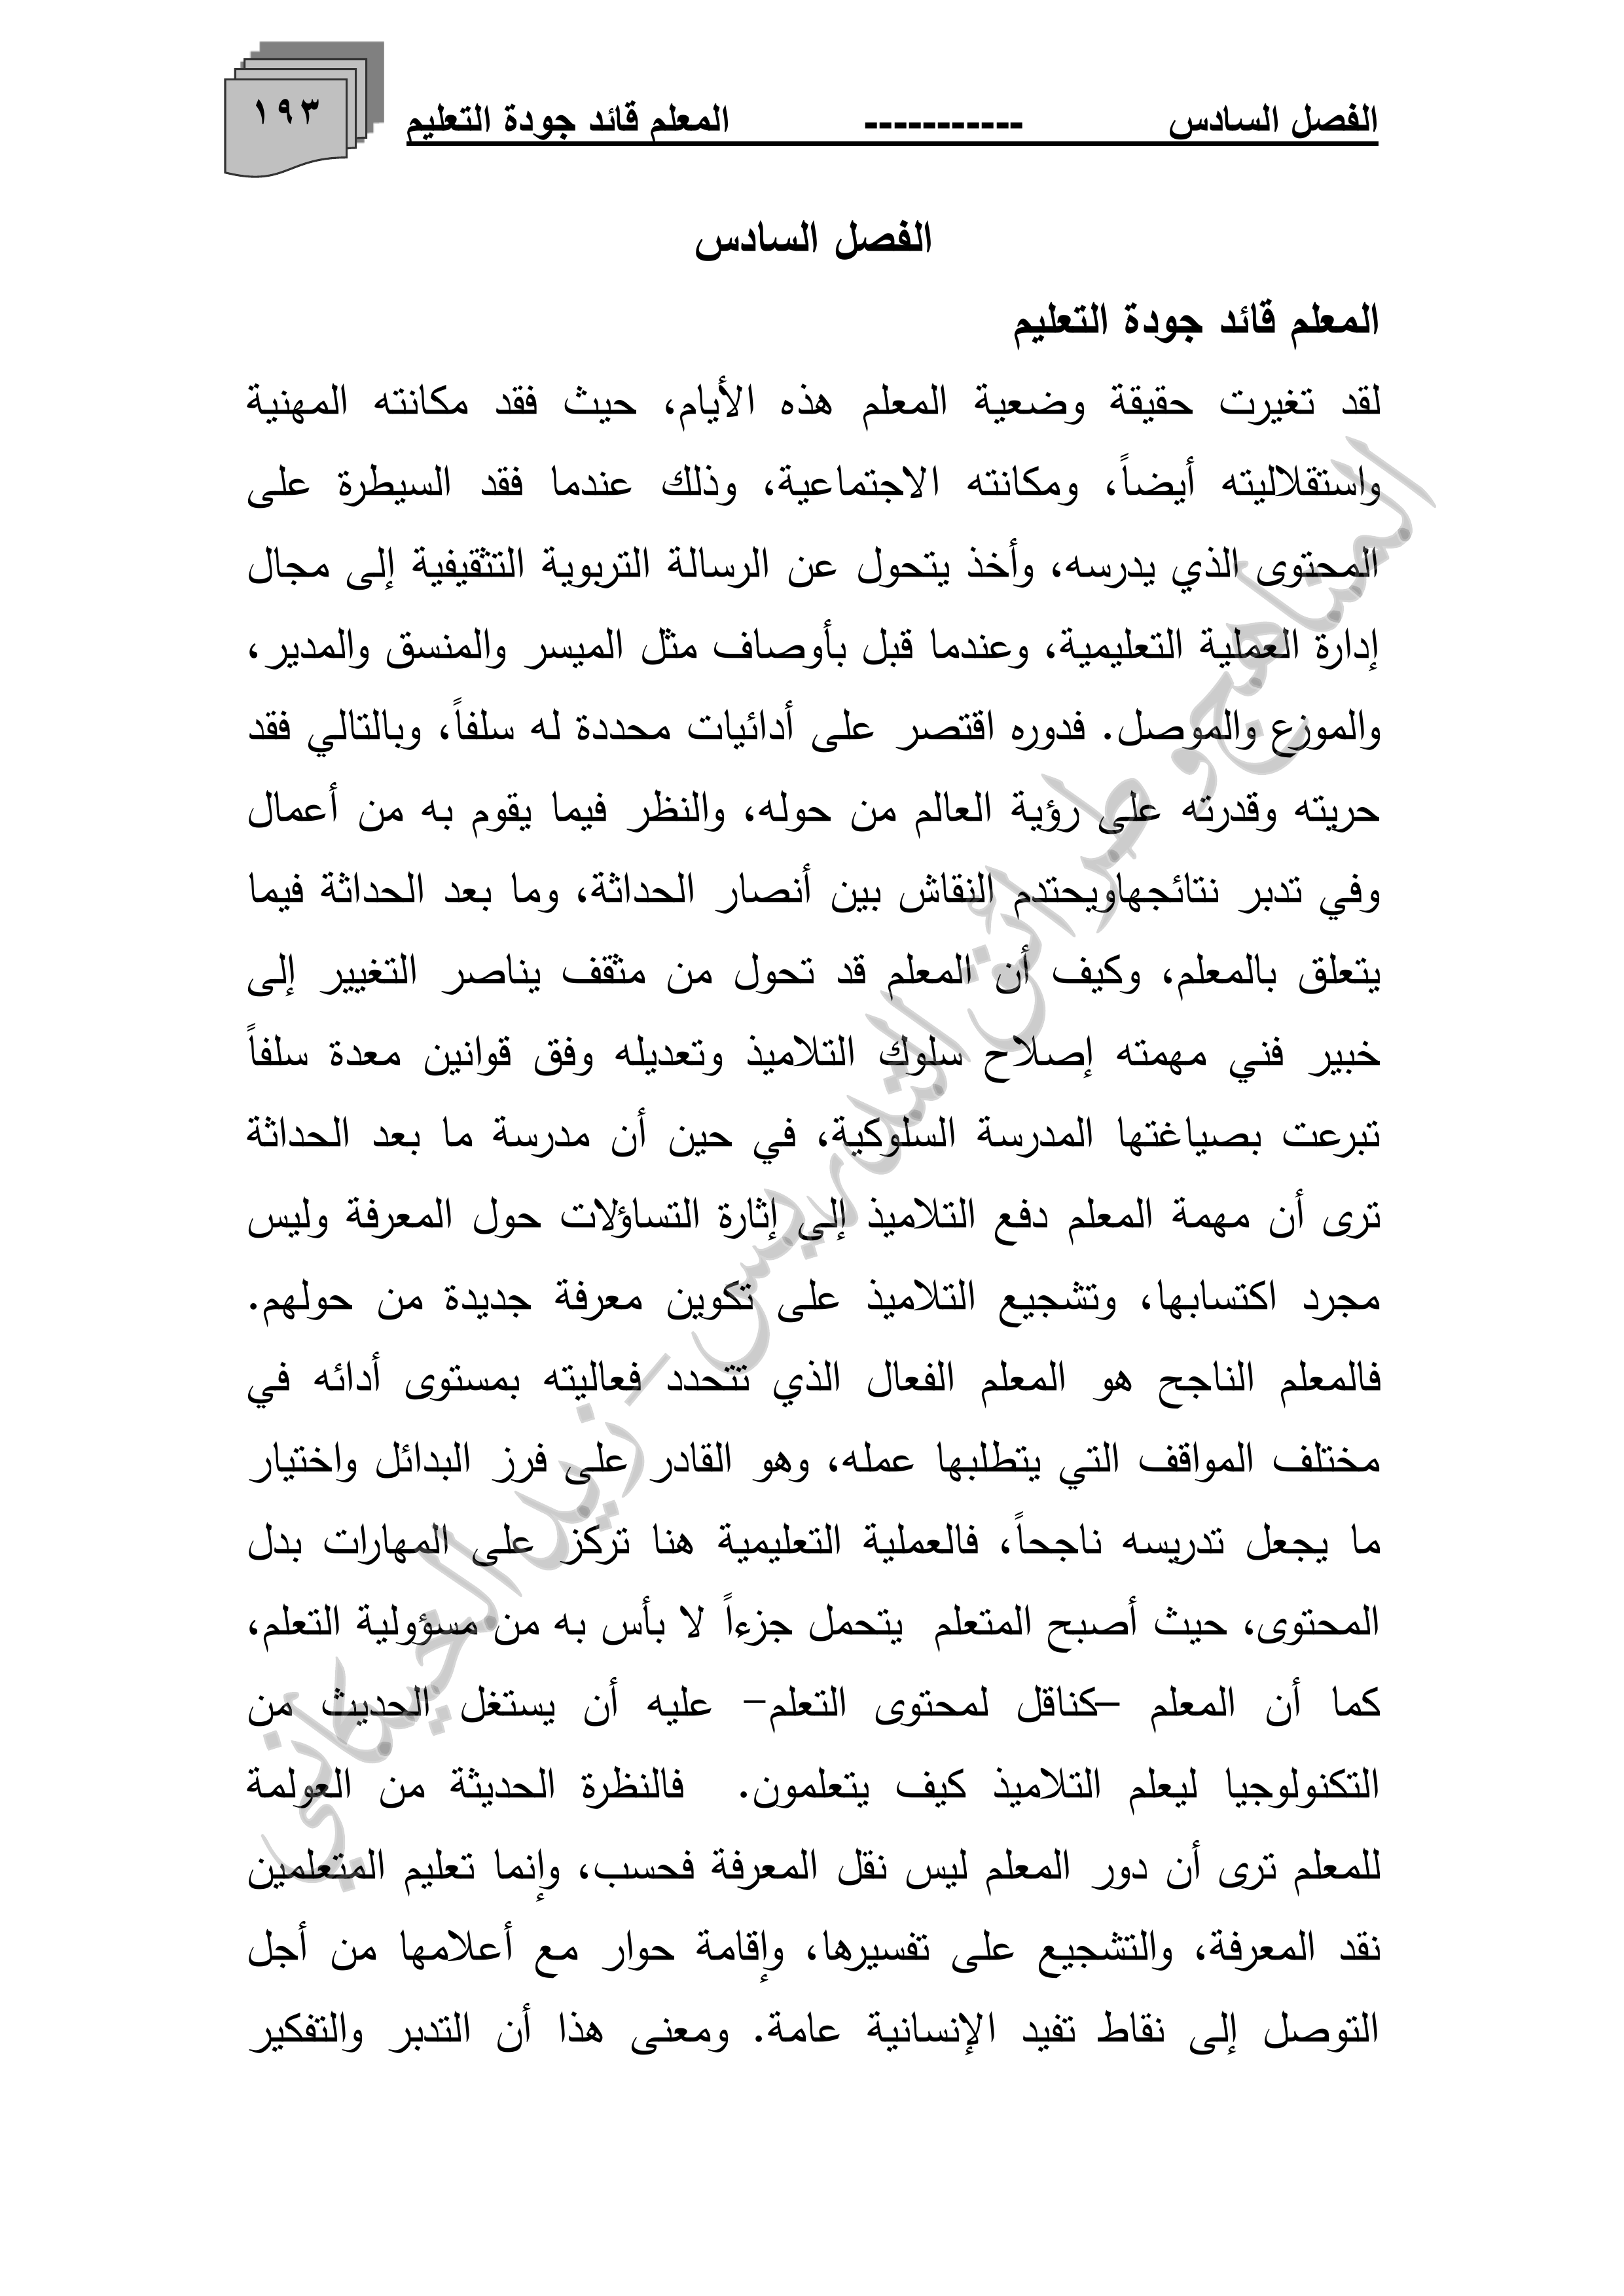 الفصل السادس ----------- المعلم قائد جودة التعليم
١٩٣
الفصل السادس
المعلم قائد جودة التعليم
لقد تغيرت حقيقة وضعية المعلم هذه الأيام، حيث فقد مكانته المهنية
واستقلاليته أيضاً، ومكانته الاجتماعية، وذلك عندما فقد السيطرة على
المحتوى الذي يدرسه، وأخذ يتحول عن الرسالة التربوية التثقيفية إلى مجال
إدارة العملية التعليمية، وعندما قبل بأوصاف مثل الميسر والمنسق والمدير،
والموزع والموصل. فدوره اقتصر على أدائيات محددة له سلفاً، وبالتالي فقد
حريته وقدرته على رؤية العالم من حوله، والنظر فيما يقوم به من أعمال
وفي تدبر نتائجهاويحتدم النقاش بين أنصار الحداثة، وما بعد الحداثة فيما
يتعلق بالمعلم، وكيف أن المعلم قد تحول من مثقف يناصر التغيير إلى
خبير فني مهمته إصلاح سلوك التلاميذ وتعديله وفق قوانين معدة سلفاً
تبرعت بصياغتها المدرسة السلوكية، في حين أن مدرسة ما بعد الحداثة
ترى أن مهمة المعلم دفع التلاميذ إلى إثارة التساؤلات حول المعرفة وليس
مجرد اكتسابها، وتشجيع التلاميذ على تكوين معرفة جديدة من حولهم.
فالمعلم الناجح هو المعلم الفعال الذي تتحدد فعاليته بمستوى أدائه في
مختلف المواقف التي يتطلبها عمله، وهو القادر على فرز البدائل واختيار
ما يجعل تدريسه ناجحاً، فالعملية التعليمية هنا تركز على المهارات بدل
المحتوى، حيث أصبح المتعلم يتحمل جزءاً لا بأس به من مسؤولية التعلم،
كما أن المعلم –كناقل لمحتوى التعلم– عليه أن يستغل الحديث من
التكنولوجيا ليعلم التلاميذ كيف يتعلمون. فالنظرة الحديثة من العولمة
للمعلم ترى أن دور المعلم ليس نقل المعرفة فحسب، وإنما تعليم المتعلمين
نقد المعرفة، والتشجيع على تفسيرها، وإقامة حوار مع أعلامها من أجل
التوصل إلى نقاط تفيد الإنسانية عامة. ومعنى هذا أن التدبر والتفكير
المناهج وطرائق التدريس – زيد الخيكاني